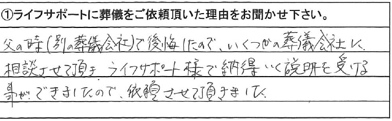 ①ライフサポートに葬儀をご依頼頂いた理由をお聞かせ下さい。
父の時(別の葬儀会社)で後悔したので、いくつかの葬儀会社に
相談させて頂き ライフサポート様で納得いく説明を受ける
事ができましたので、依頼させて頂きました